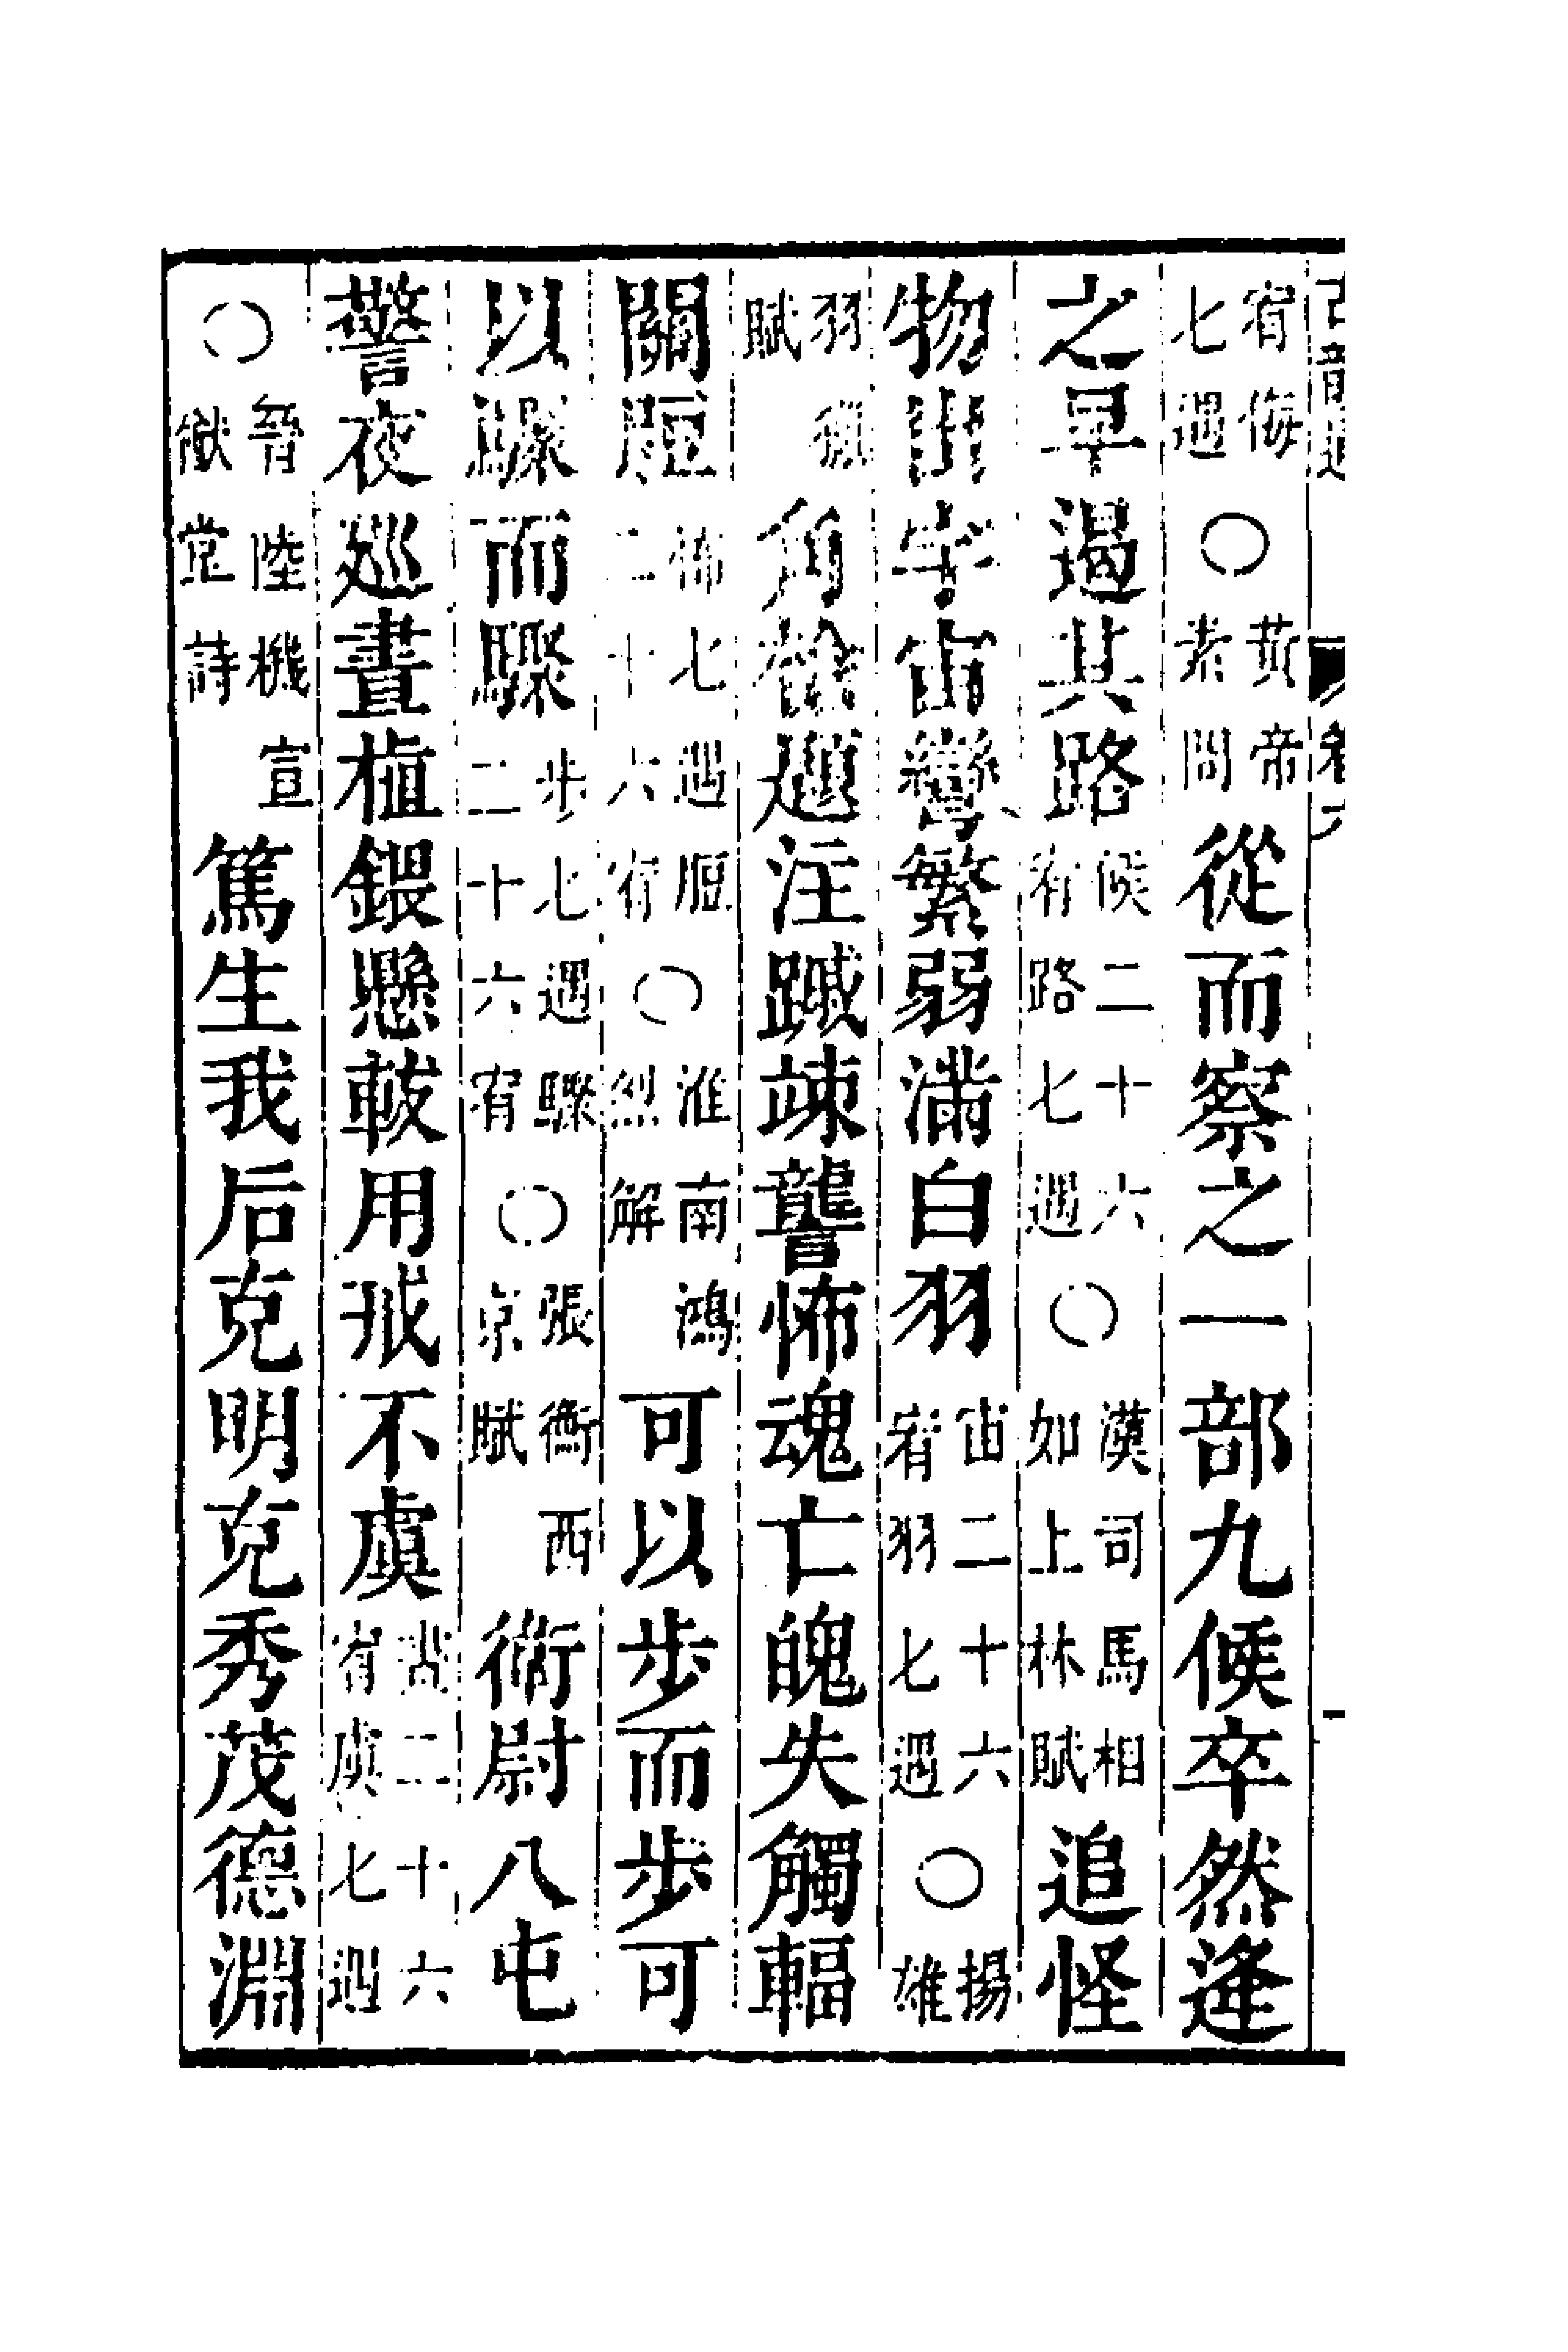 宥侮七遇○黃帝素問從而察之一部九候卒然逢
之早遏其路候二十六宥路七遇○漢司馬相如上林賦追怪
物出宇宙彎繁弱滿白羽宙二十六宥羽七遇○揚雄
羽獵賦角槍題注蹴竦讋怖魂亡魄失觸輻
關脰怖七遇脰二十六宥○淮南鴻烈解可以步而步可
以驟而驟步七遇驟二十六宥○張衡西京賦衛尉八屯
警夜巡晝植鍡懸用戒不虞晝二十六宥虞七遇
○晉陸機宣猷堂詩篤生我后克明克秀茂德淵